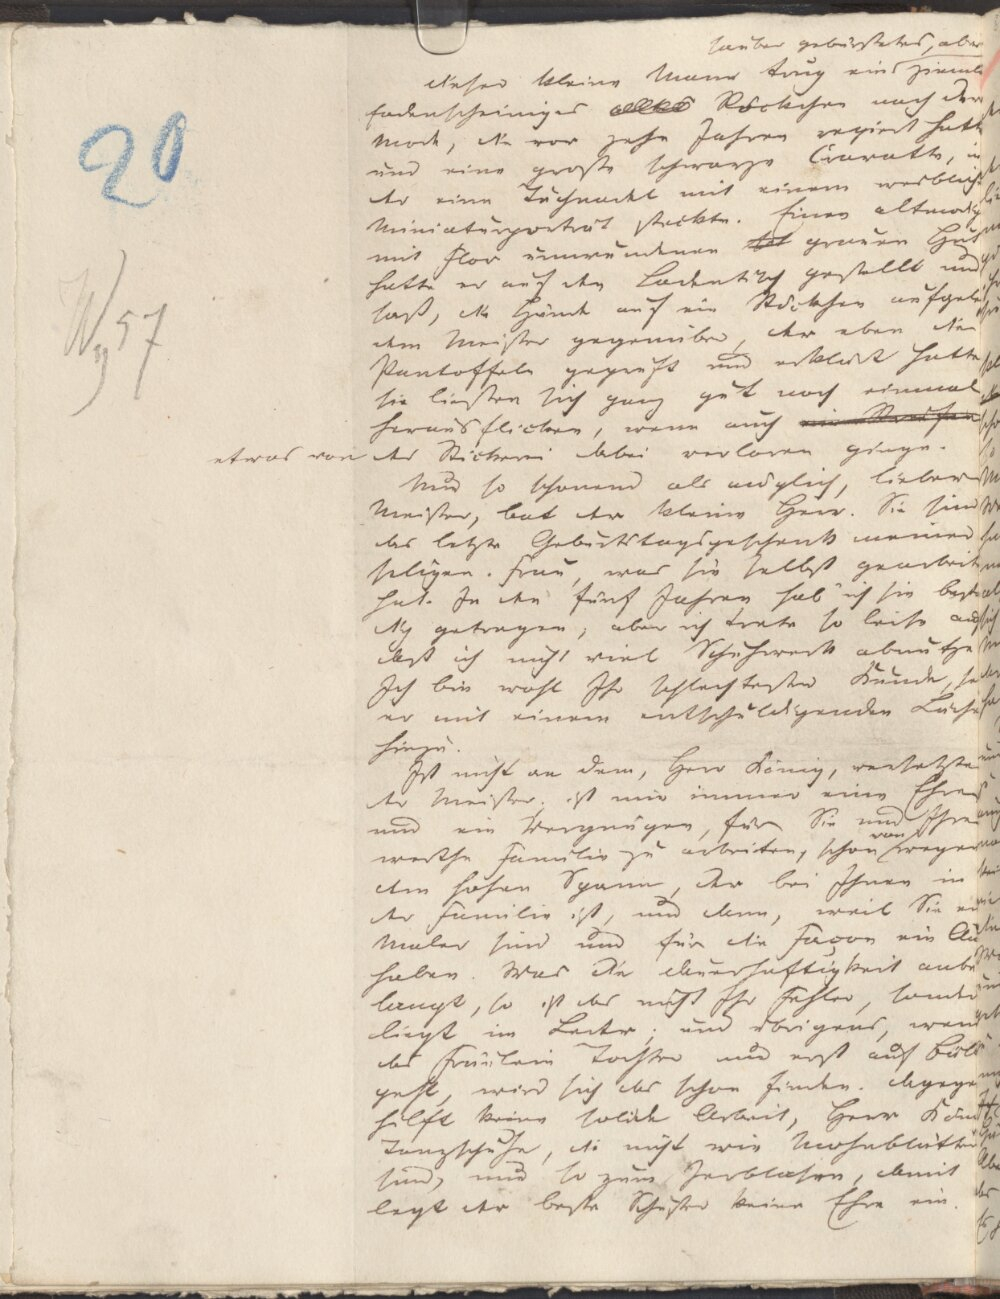 sauber gebürstetes, aber
20
dieser kleine Mann trug ein ziemlich
fadenscheiniges altes Röckchen nach der
Mode, die vor zehn Jahren regiert hatte
und eine große schwarze Cravatte, in
der eine Tuchnadel mit einem weiblichen
Miniaturporträt steckte. Einen altmodig
mit Flor umwundenen grauen Hut
hatte er auf den Ladentisch gestellt und
W 57
saß, die Hände auf ein Stöckchen aufgele
dem Meister gegenüber, der eben die
Pantoffeln geprüft und erklärt hatte
sie ließen sich ganz gut noch einmal
herausflicken, wenn auch
etwas von der Stickerei dabei verloren ginge.
Nur so schonend als möglich, lieber
Meister, bat der kleine Herr. Sie sind
das letzte Geburtstagsgeschenk meiner
seligen Frau, was sie selbst gearbeitet
hat. In den fünf Jahren hab' ich sie bestä
dig getragen; aber ich trete so leise auf
daß ich nicht viel Schuhwerk abnutze
Ich bin wohl Ihr schlechtester Kunde, se
er mit einem entschuldigenden Läche
hinzu.
Ist nicht an dem, Herr König, versetzte
der Meister; ist mir immer eine Ehre
und ein Vergnügen, für Sie und Ihre
werthe Familie zu arbeiten, schon von wegen
dem hohen Spann, der bei Ihnen in
der Familie ist, und dann, weil Sie ein
Maler sind und für die Façon ein Au
haben. Was die Dauerhaftigkeit anbe
langt, so ist das nicht Ihr Fehler, sonder
liegt im Leder; und übrigens, wenn
das Fräulein Tochter nur erst auf Bäll
geht, wird sich das schon finden. Dagege
hilft keine solide Arbeit, Herr Kön
Tanzschuhe, die nicht wie Mohnblätter
sind, nur so zum Zerblasen, damit
legt der beste Schuster keine Ehre ein.